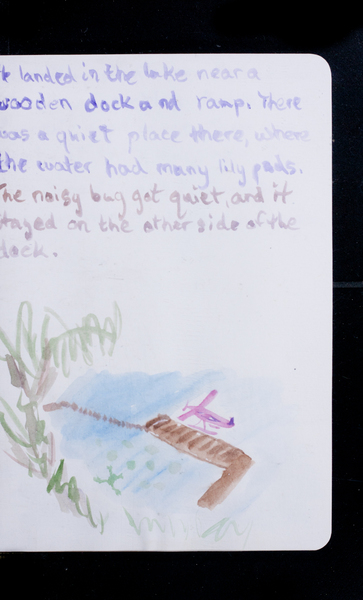 It landed in the lake near a
wooden dock and ramp. There
was a quiet place there, where
the water had many lily pads.
The noisy bug got quiet, and it
stayed on the other side of the
dock.